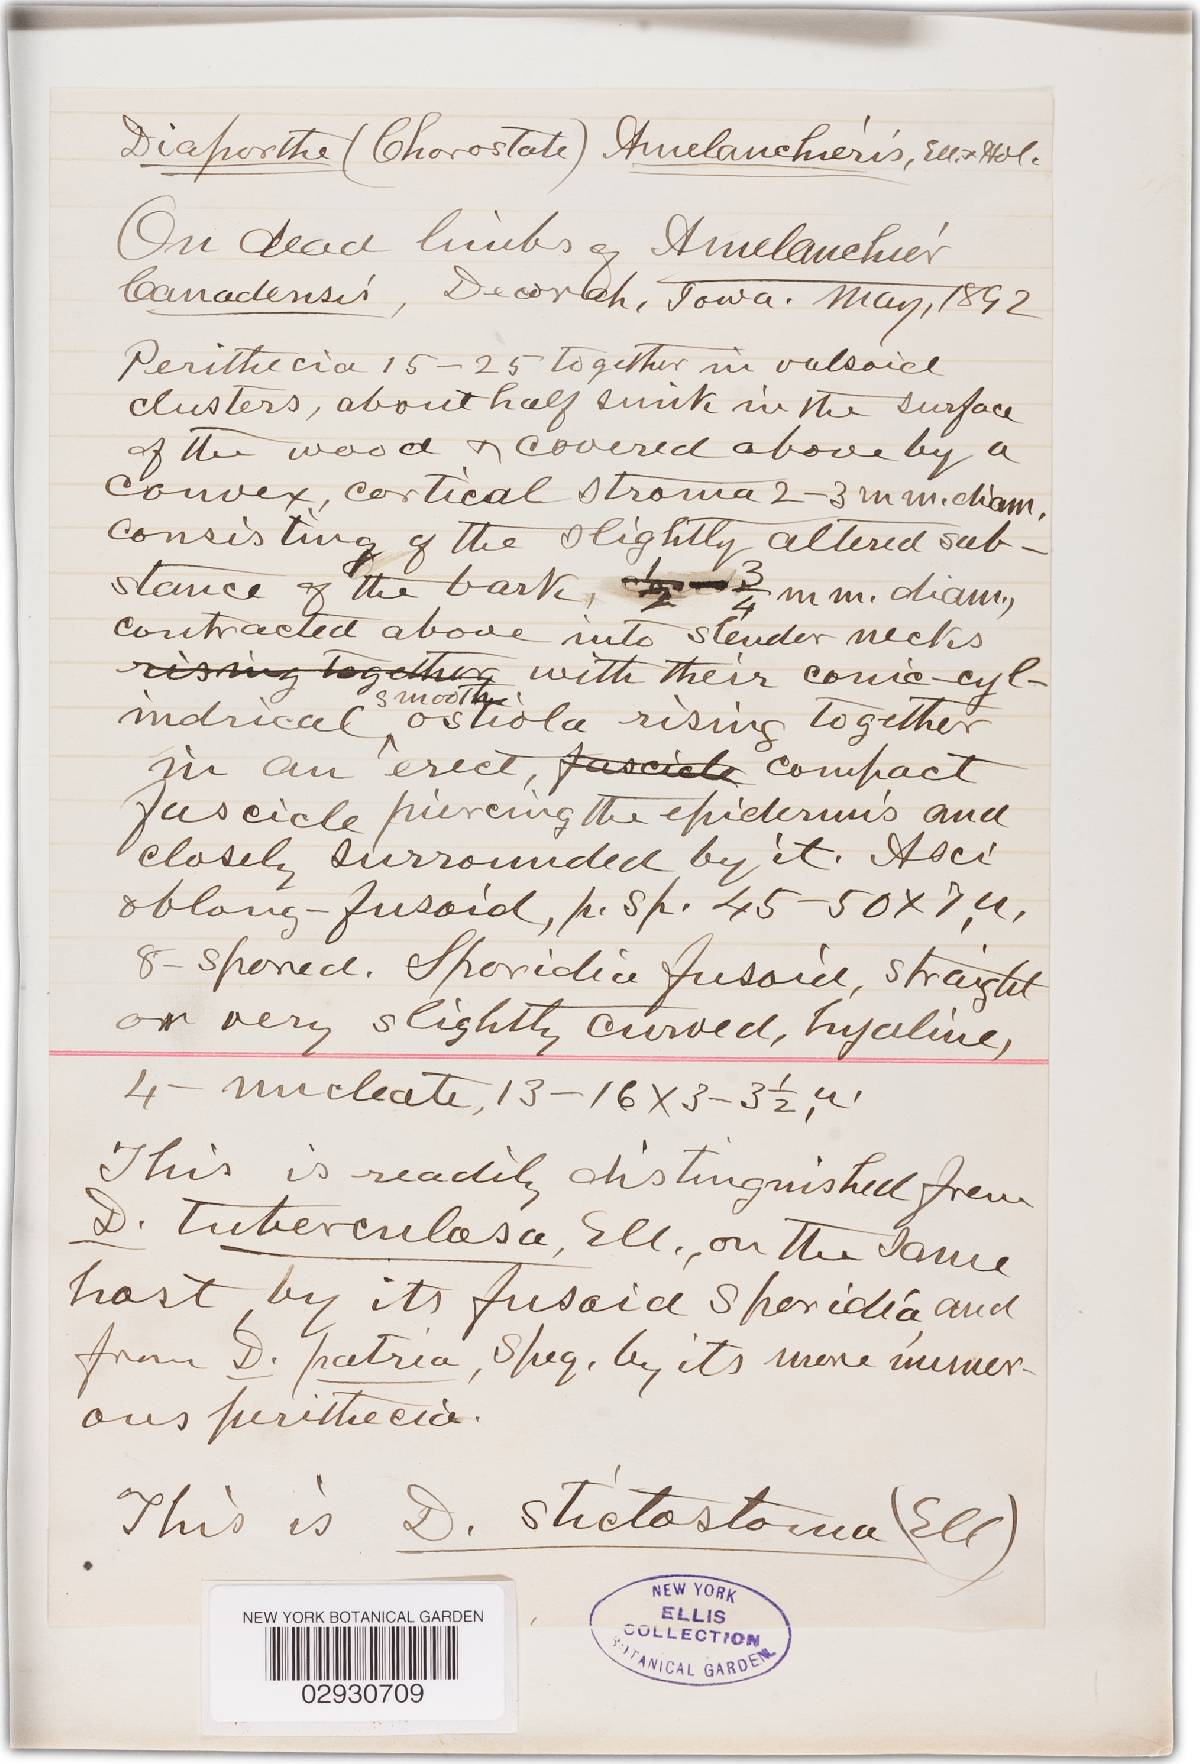 Diaporthe (Chorostate) Amelanchieris, Ell. & Hol.
On dead limbs of Amelanchier
Canadensis, Decorah, Iowa. May, 1892
Perithecia 15–25 together in valsoid
clusters, about half sunk in the surface
of the wood & covered above by a
convex, cortical stroma 2–3 m m. diam.
consisting of the slightly altered sub-
stance of the bark, ½ – ¾ m m. diam.,
contracted above into slender necks
rising together with their conic-cyl-
smooth
indrical ^ ostiola rising together
in an erect, fascicle compact
fascicle piercing the epidermis and
closely surrounded by it. Asci
oblong-fusoid, p. sp. 45–50 x 7 µ.
8-spored. Sporidia fusoid, straight
or very slightly curved, hyaline,
4-nucleate, 13–16 x 3–3½ µ.
This is readily distinguished from
D. tuberculosa, Ell., on the same
host by its fusoid sporidia and
from D. patria, Speg. by its more numer-
ous perithecia.
This is D. stictostoma (Ell)
NEW YORK BOTANICAL GARDEN
02930709
NEW YORK
ELLIS
COLLECTION
BOTANICAL GARDEN